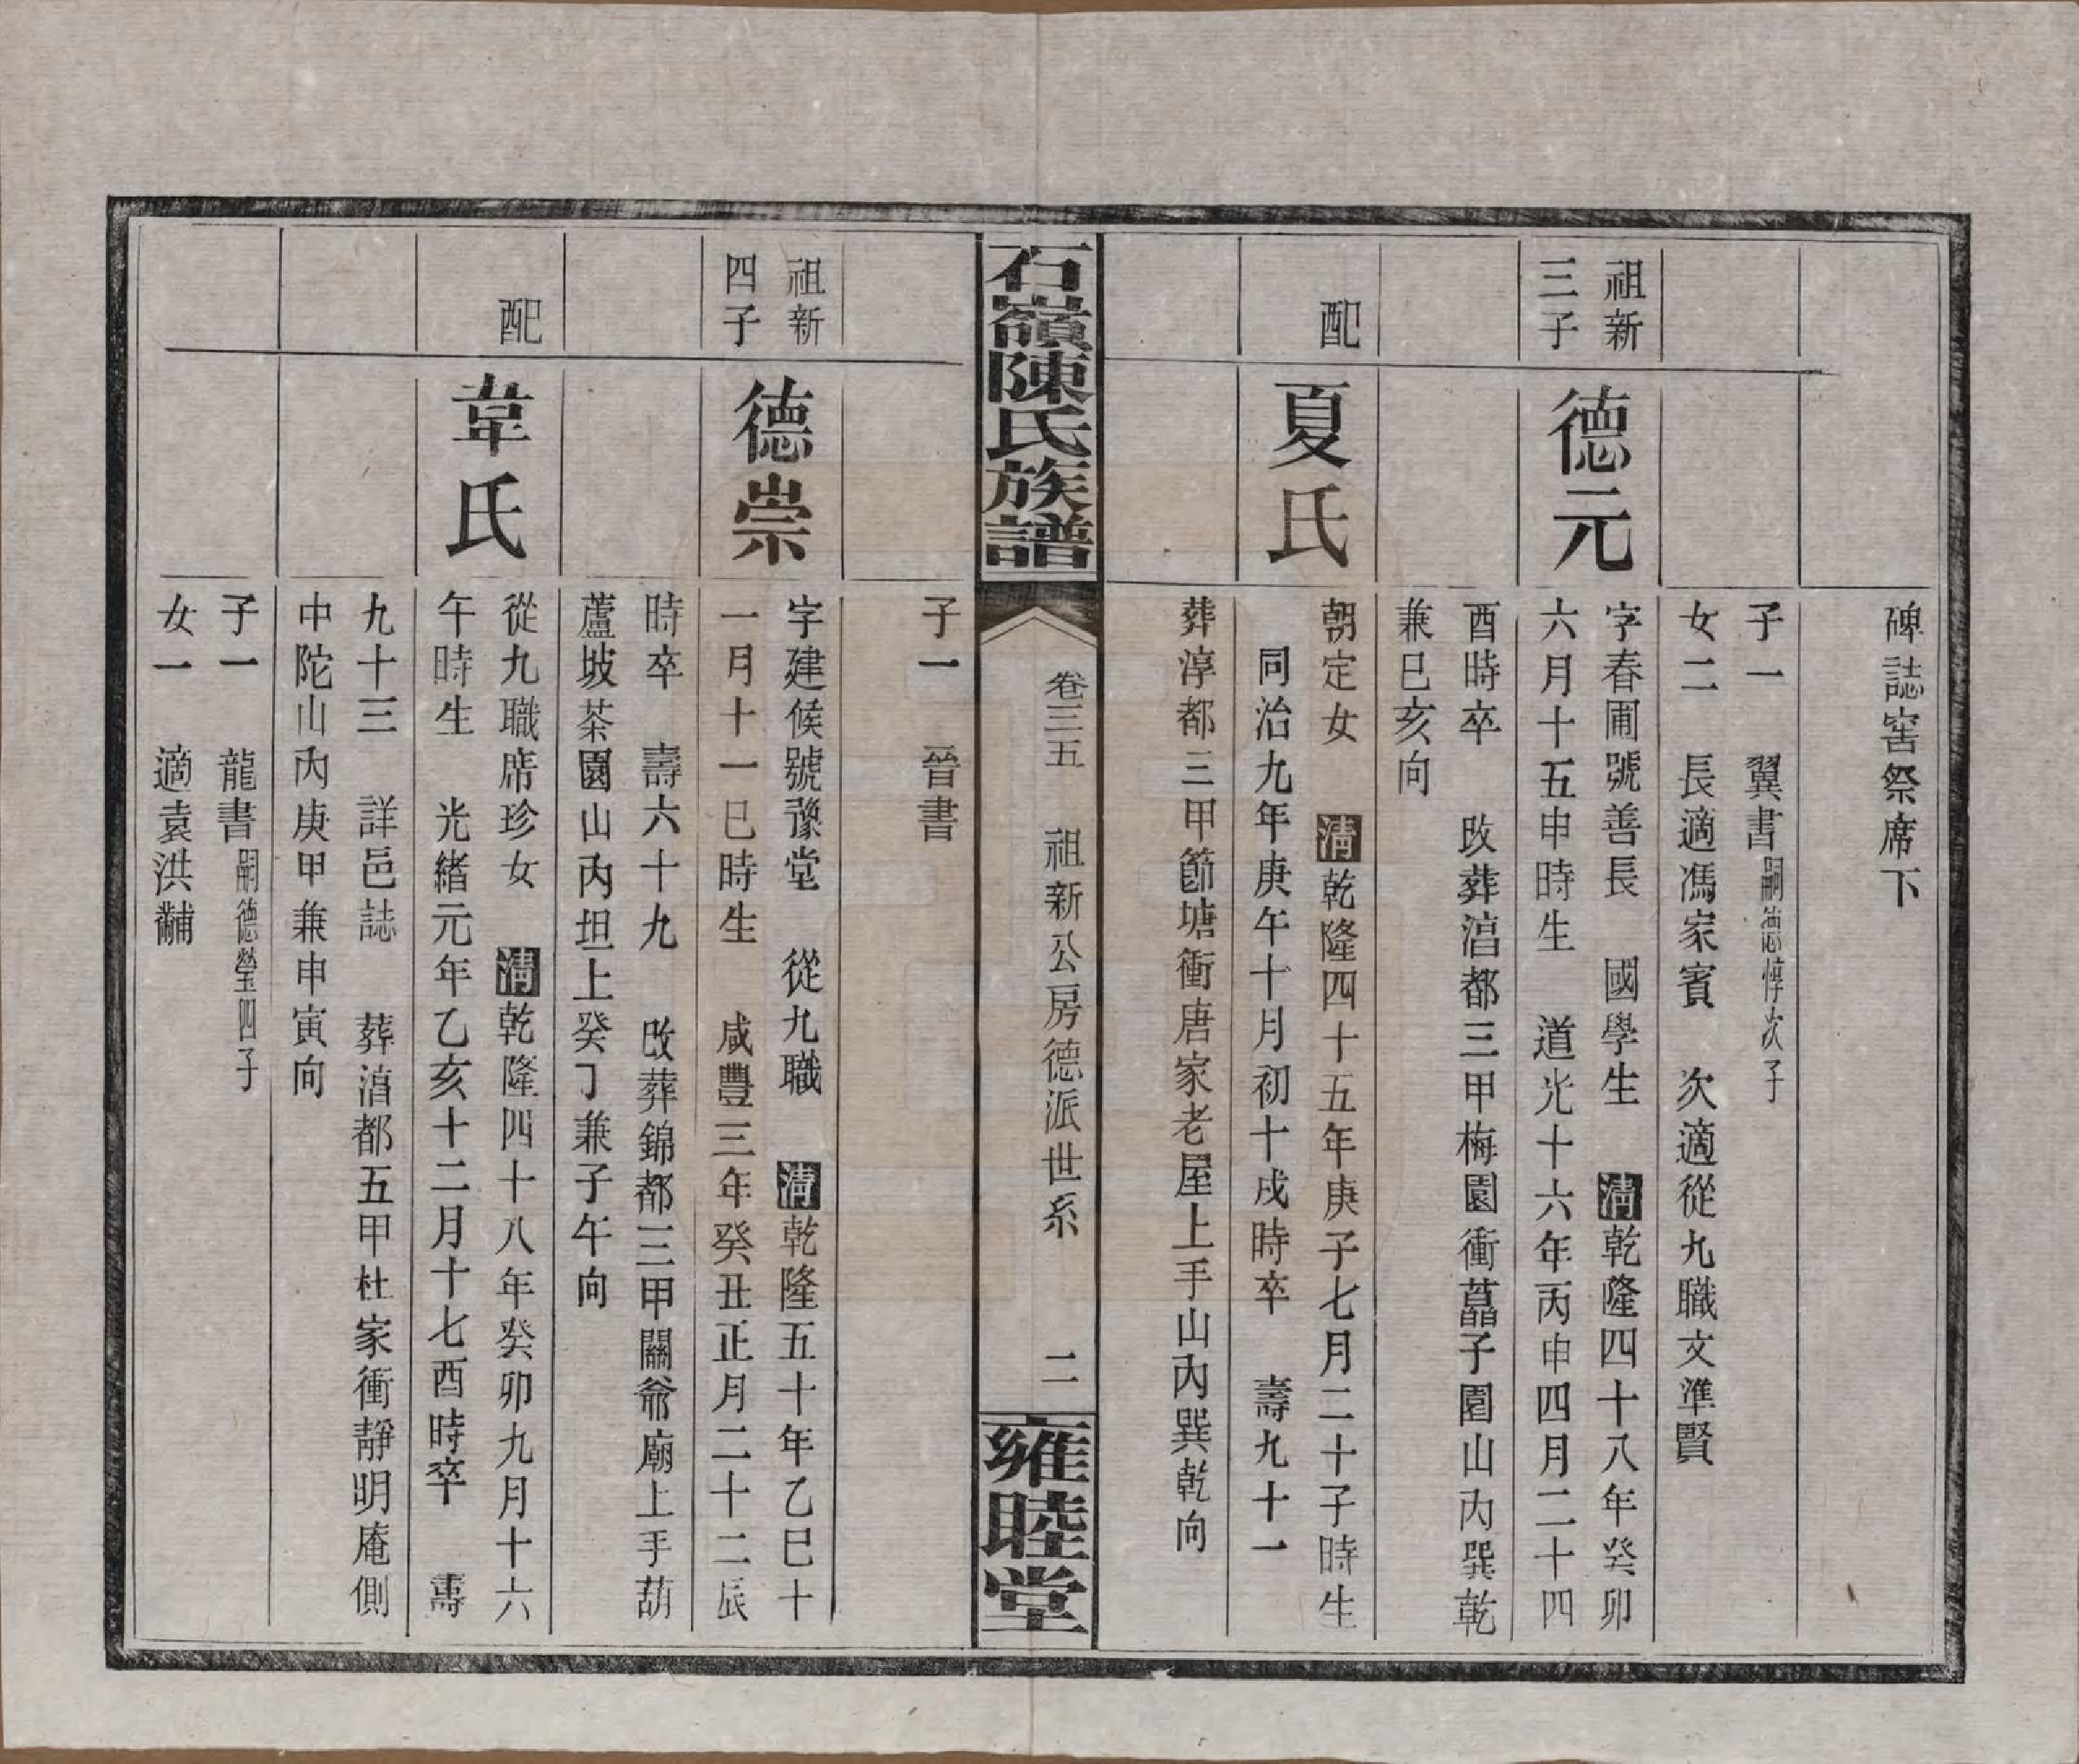 碑誌窖祭席下
子一　翼書嗣德惇次子
女二　長適馮家賓　次適從九職文準賢
祖新
三子
德元
字春圃號善長　國學生　清乾隆四十八年癸卯
六月十五申時生　道光十六年丙申四月二十四
酉時卒　改葬淐都三甲梅園衝藠子園山內巽乾
兼巳亥向
配
夏氏
朝定女　清乾隆四十五年庚子七月二十子時生
同治九年庚午十月初十戌時卒　壽九十一
葬淳都三甲節塘衝唐家老屋上手山內巽乾向
石嶺陳氏族譜
卷三五　祖新公房德派世系　二
雍睦堂
子一　晉書
祖新
四子
德崇
字建候號豫堂　從九職　清乾隆五十年乙巳十
一月十一巳時生　咸豐三年癸丑正月二十二辰
時卒　壽六十九　改葬錦都三甲關爺廟上手葫
蘆坡茶園山內坦上癸丁兼子午向
配
韋氏
從九職席珍女　清乾隆四十八年癸卯九月十六
午時生　光緒元年乙亥十二月十七酉時卒　壽
九十三　詳邑誌　葬淯都五甲杜家衝靜明庵側
中陀山內庚甲兼申寅向
子一　龍書嗣德瑩四子
女一　適袁洪黼